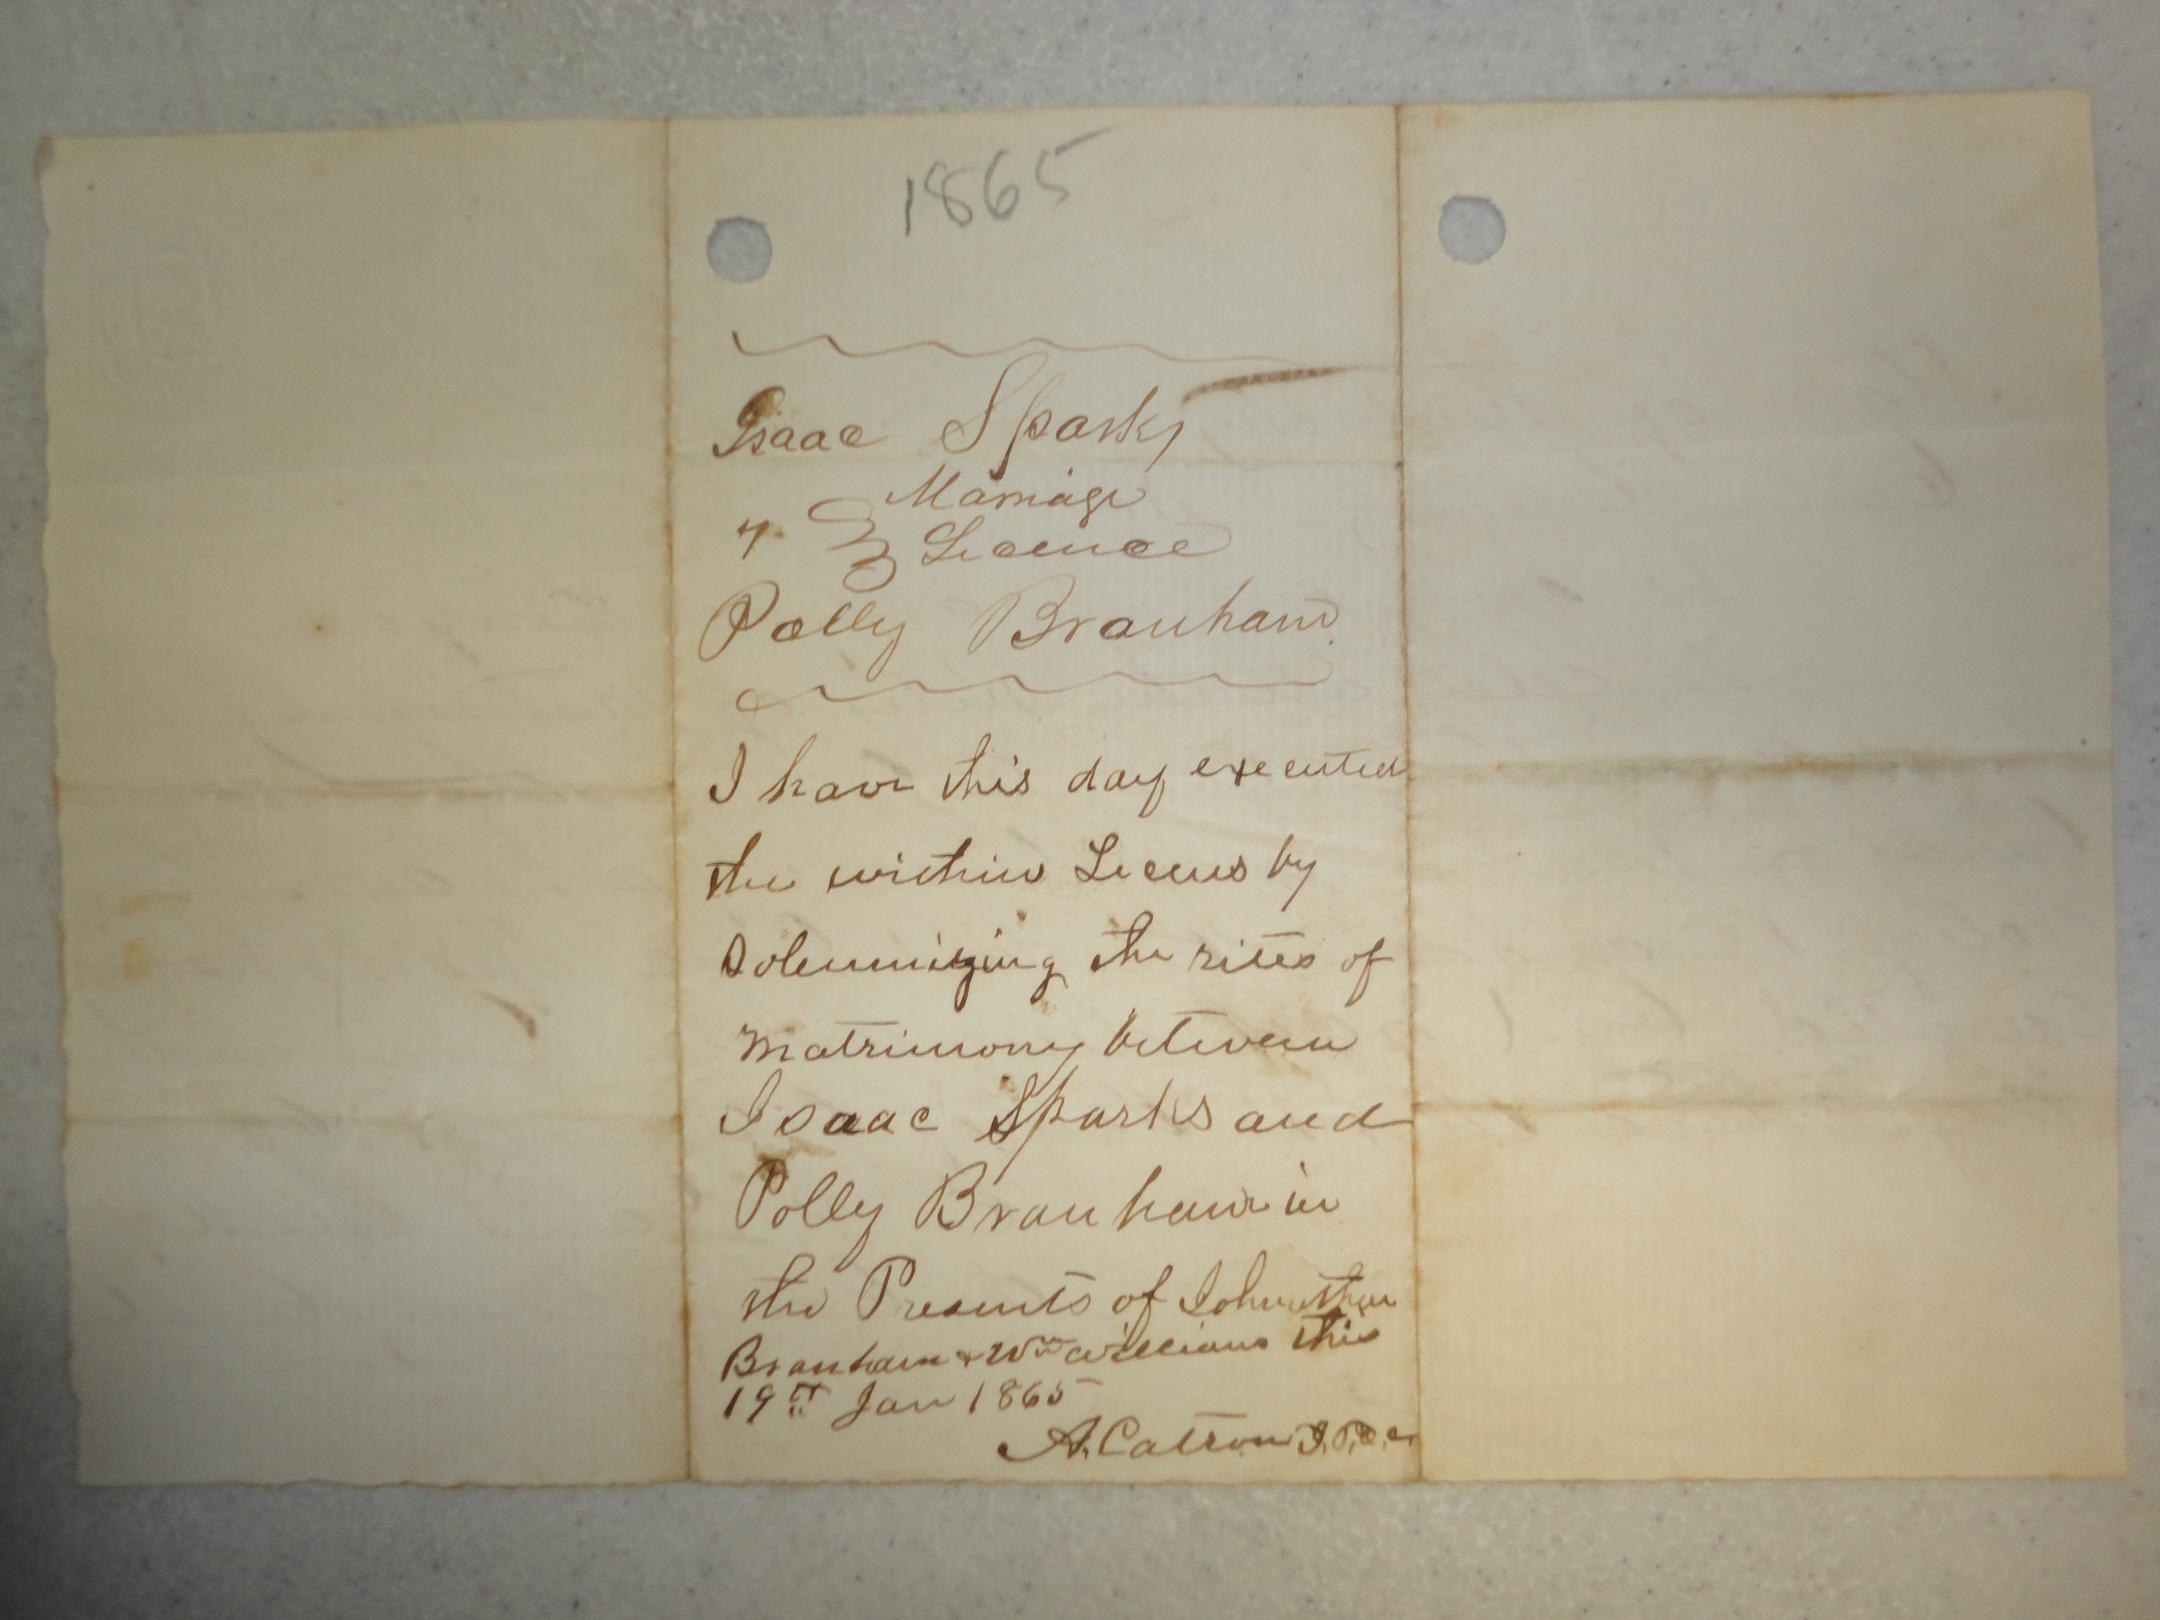 1865
Isaac Sparks
Marriage
& Licence
Polly Branham
I have this day executed
the within Licens by
Solemnizing the rites of
Matrimony between
Isaac Sparks and
Polly Branham in
the Presents of Johnathan
Branham & Wm Williams this
19th Jan 1865
A. Catron J.P.